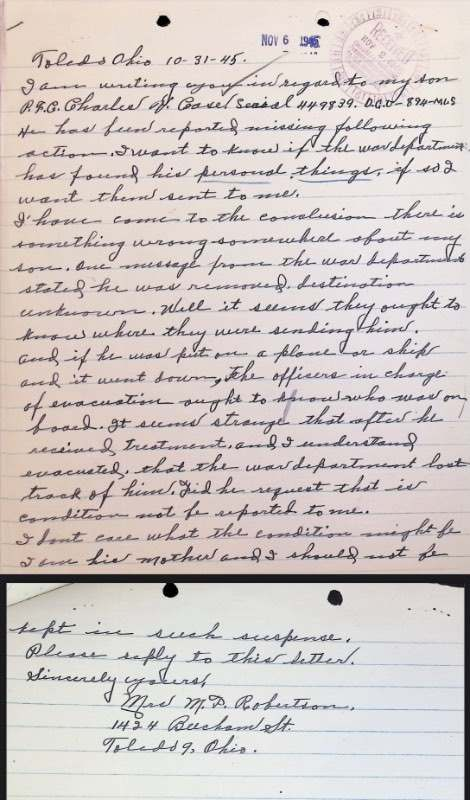 NOV 6 1945
Toledo Ohio 10-31-45.
I am writing you in regard to my son
P.F.C. Charles W. Case, Serial 449839. D.C.U-894-MLS
He has been reported missing following
action. I want to know if the war department
has found his personal things, if so I
want them sent to me.
I have come to the conclusion there is
something wrong somewhere about my
son. One message from the war department
stated he was removed. destination
unknown. Well it seems they ought to
know where they were sending him.
and if he was put on a plane or ship
and it went down, the officers in charge
of evacuation ought to know who was on
board. It seems strange that after he
received treatment, and I understand
evacuated, that the war department lost
track of him. Did he request that is
condition not be reported to me.
I dont care what the condition might be
I am his mother and I should not be
kept in such suspense.
Please reply to this letter.
Sincerely yours,
Mrs M. D. Robertson,
1424 Beecham St.
Toledo 9, Ohio.